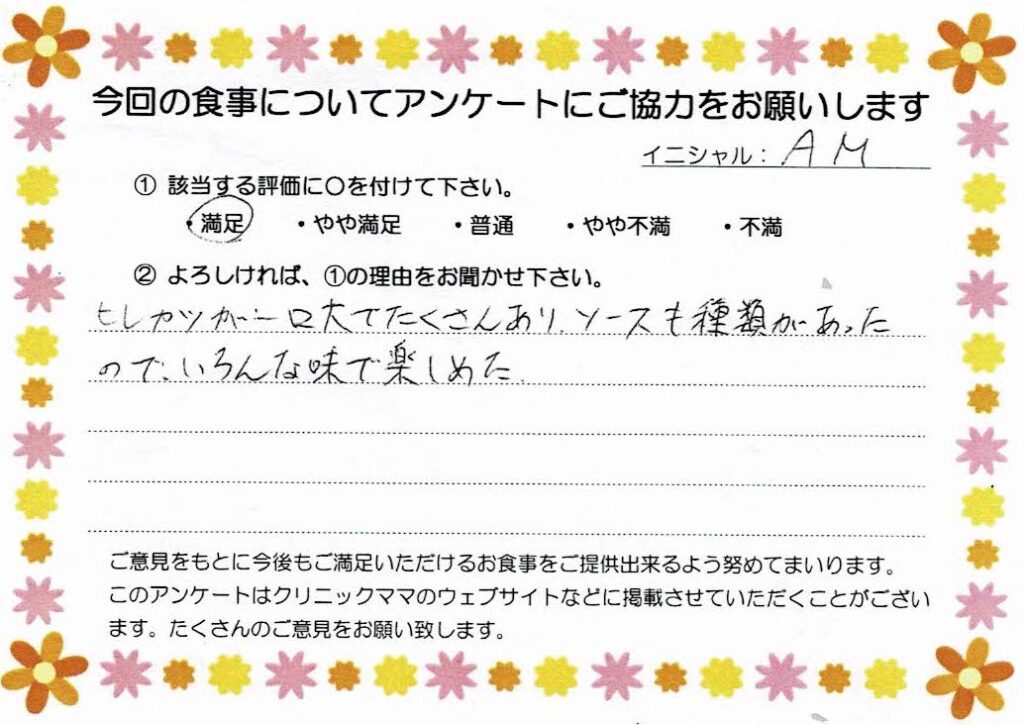 今回の食事についてアンケートにご協力をお願いします
イニシャル： A M
① 該当する評価に〇を付けて下さい。
・満足 ・やや満足 ・普通 ・やや不満 ・不満
② よろしければ、①の理由をお聞かせ下さい。
ヒレカツが一口大でたくさんあり、ソースも種類があった
ので、いろんな味で楽しめた。
ご意見をもとに今後もご満足いただけるお食事をご提供出来るよう努めてまいります。
このアンケートはクリニックママのウェブサイトなどに掲載させていただくことがござい
ます。たくさんのご意見をお願い致します。